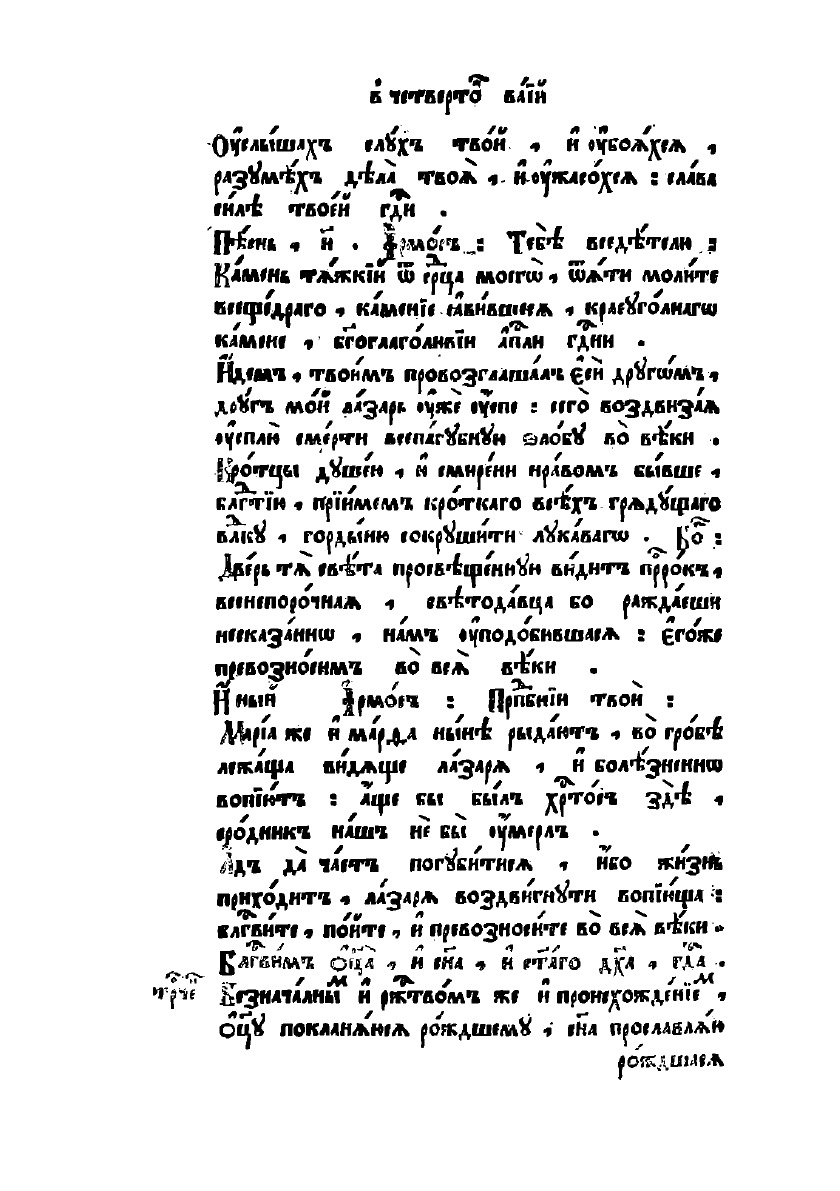 в҆ четверто́къ ва́їй
Оу҆слы́шахъ слу́хъ тво́й , и҆ оу҆боѧ́хсѧ ,
разꙋмѣ́хъ дѣла̀ твоѧ̀ , и҆ оу҆жасо́хсѧ : сла́ва
си́лѣ твое́й гд҇и .
Пѣ́снь , и҃ . І҆рмо́съ : Тебѣ̀ вседѣ́телю :
Ка́мень тѧ́жкїй ѿ се́рдца моегѡ̀ , ѿѧ́ти моли́те
всеще́драго , ка́менїе ꙗ҆ви́вшеесѧ , краеꙋго́лнагѡ
ка́мене , бг҃оглаго́ливїи а҆пⷭ҇ли гдⷭ҇ни .
И҆́демъ , твои́мъ провозглаша́лъ є҆сѝ дрꙋгѡ́мъ ,
дрꙋ́гъ мо́й ла́зарь оу҆жѐ оу҆́спе : сего̀ воздвиза́ѧ
оу҆сплю̀ сме́рти всепа́гꙋбнꙋю ѕло́бꙋ во̀ вѣ́ки .
Кро́тцы дꙋше́ю , и҆ смире́ни нра́вомъ бы́вше ,
блгⷣтїю , прїи́мемъ кро́ткаго всѣ́хъ грѧдꙋ́щаго
влⷣкꙋ , горды́ню сокрꙋши́ти лꙋка́вагѡ . Бо҇ :
Две́рь тѧ̀ свѣ́та просвѣще́ннꙋю ви́дитъ прⷪ҇ро́къ ,
всенепоро́чнаѧ , свѣтода́вца бо ражда́еши
несказа́ннѡ , на́мъ оу҆подо́бившаасѧ : є҆го́же
превозно́симъ во̀ всѧ̀ вѣ́ки .
И҆́ный І҆рмо́съ : Прпⷣбнїи твоѝ :
Марі́ѧ же и҆ ма́рѳа ны́нѣ рыда́ютъ , во̀ гро́бѣ
лежа́ща ви́дѧще ла́зарѧ , и҆ болѣ́зненнѡ
вопїю́тъ : а҆́ще бы бы́лъ хрⷭ҇то́съ здѣ̀ ,
сро́дникъ на́шъ не́ бы оу҆́мерлъ .
А҆́дъ да̀ ча́етъ погꙋби́тисѧ , и҆́бо жи́знь
прихо́дитъ , ла́зарѧ воздви́гнꙋти вопїю́ща :
блгⷭ҇ви́те , по́йте , и҆ превозноси́те во̀ всѧ̀ вѣ́ки .
Блгⷭ҇ви́мъ ѻ҆ц҃а̀ , и҆ сн҃а , и҆ ст҃а́го дх҃а , гдⷭ҇а .
трⷪ҇че Безнача́лны́мъ и҆ ржⷭ҇тво́мъ же и҆ происхожде́нїемъ ,
ѻ҆ц҃ꙋ̀ покланѧ́юсѧ ро́ждшемꙋ , сн҃а прославлѧ́ю
ро́ждшасѧ